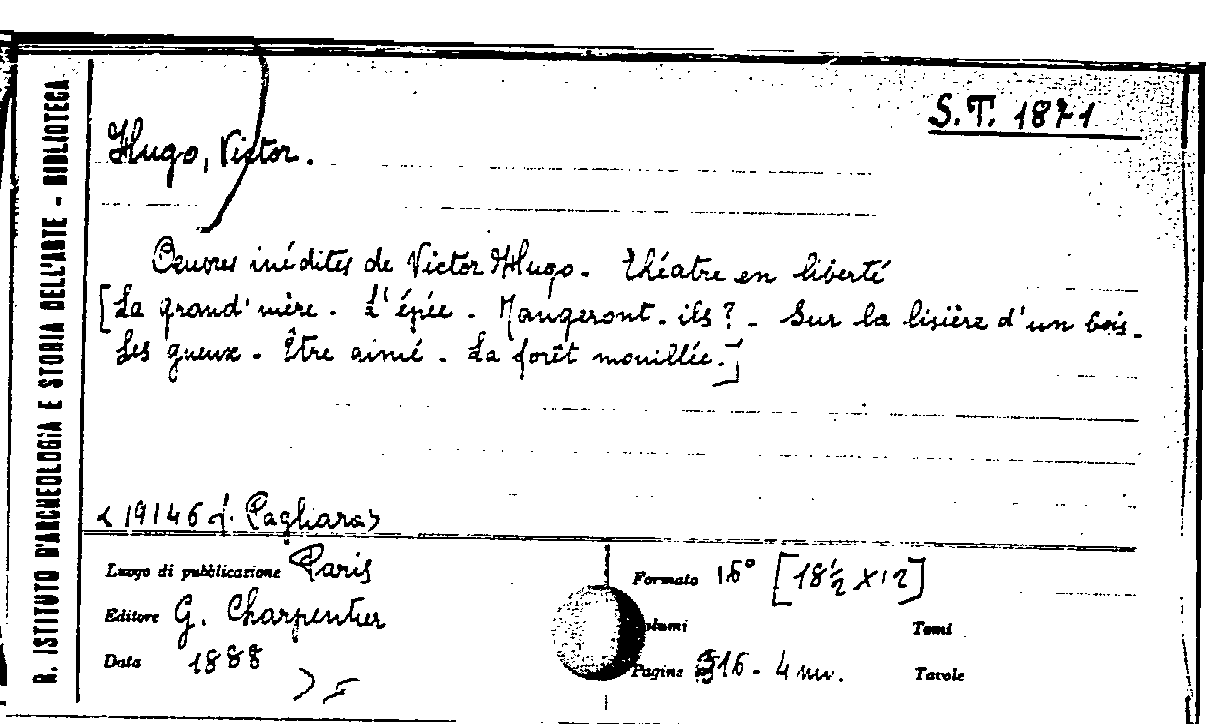 R. ISTITUTO D'ARCHEOLOGIA E STORIA DELL'ARTE - BIBLIOTECA
S.T. 1871
Hugo, Victor.
Œuvres inédites de Victor Hugo. Théatre en liberté
[La grand'mère. L'épée. Mangeront-ils? - Sur la lisière d'un bois.
Les gueux. Être aimé. La forêt mouillée.]
<19146 f. Pagliara>
Luogo di pubblicazione Paris
Editore G. Charpentier
Data 1888
Formato 16° [18½ x 12]
Volumi
Tomi
Pagine 316 - 4 nn.
Tavole